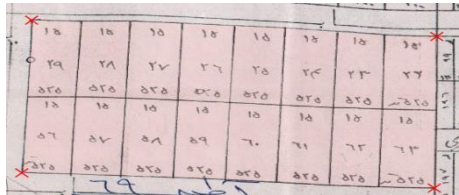 ١٥ ١٥ ١٥ ١٥ ١٥ ١٥ ١٥ ١٥
٢٩ ٢٨ ٢٧ ٢٦ ٢٥ ٢٤ ٢٣ ٢٢
٥٢٥ ٥٢٥ ٥٢٥ ٥٢٥ ٥٢٥ ٥٢٥ ٥٢٥ ٥٢٥
١٥ ١٥ ١٥ ١٥ ١٥ ١٥ ١٥
٥٦ ٥٧ ٥٨ ٥٩ ٦٠ ٦١ ٦٢ ٦٣
٥٢٥ ٥٢٥ ٥٢٥ ٥٢٥ ٥٢٥ ٥٢٥ ٥٢٥ ٥٢٥
٦٩